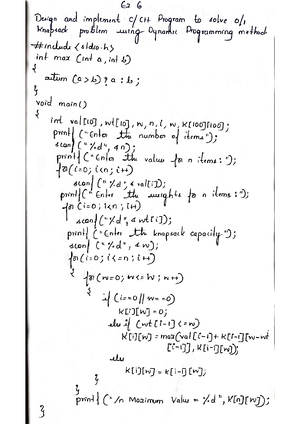 Ex 6
Design and implement C/C++ Program to solve 0/1
Knapsack problem using Dynamic Programming method
#include <stdio.h>
int max (int a, int b)
{
return (a > b) ? a : b;
}
void main()
{
int val[10], wt[10], w, n, i, w, K[100][100];
printf ("Enter the number of items");
scanf ("%d", &n);
printf ("Enter the values for n items :");
for(i=0; i<n; i++)
scanf ("%d", & val[i]);
printf ("Enter the weights for n items :");
for (i=0; i<n; i++)
scanf ("%d", & wt[i]);
printf ("Enter the knapsack capacity");
scanf ("%d", &w);
for (i=0; i<=n; i++)
{
for (w=0; w<=W; w++)
{
if (i==0 || w==0)
K[i][w] = 0;
else if (wt[i-1] <= w)
K[i][w] = max(val[i-1] + K[i-1][w-wt
[i-1]], K[i-1][w]);
else
K[i][w] = K[i-1][w];
}
}
printf ("/n Maximum Value = %d", K[n][w]);
}